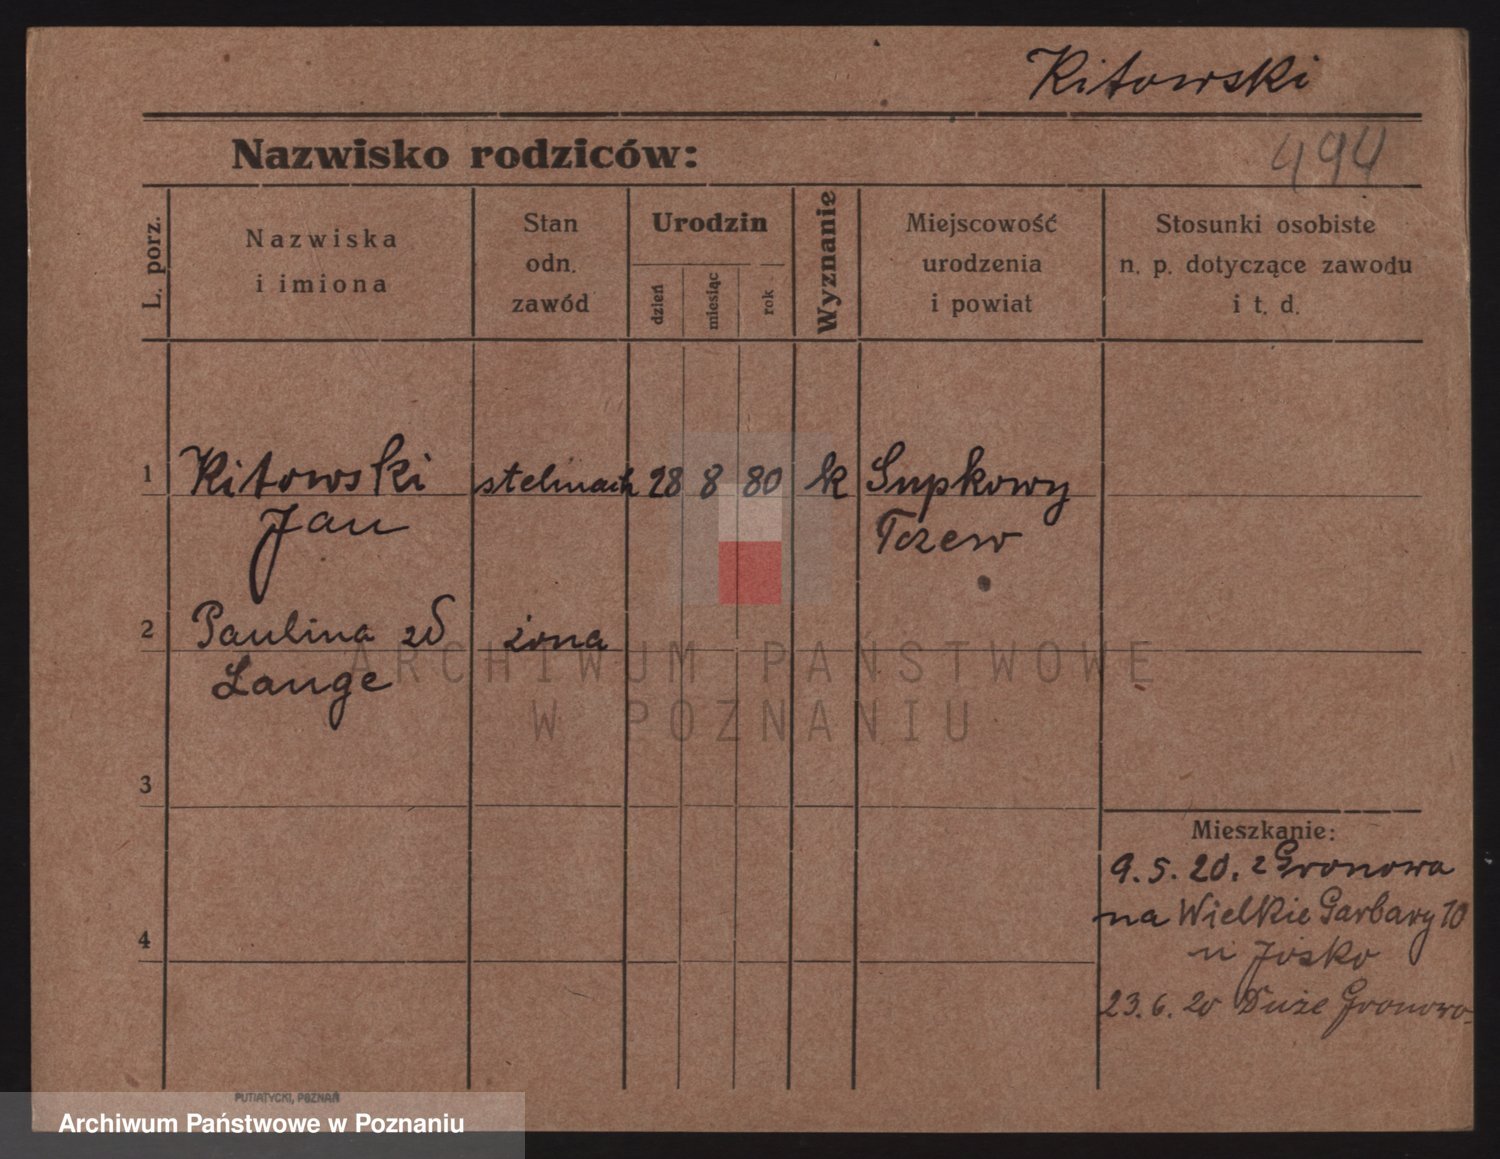 Kitowski
494
Nazwisko rodziców:
L. porz.
Nazwiska
i imiona
Stan
odn.
zawód
Urodzin
dzień
miesiąc
rok
Wyznanie
Miejscowość
urodzenia
i powiat
Stosunki osobiste
n. p. dotyczące zawodu
i t. d.
1 Kitowski stelmach 28 8 80 k Supkowy
Jan Tczew
2 Paulina zd żona
Lange
ARCHIWUM PAŃSTWOWE
W POZNANIU
3
Mieszkanie:
9.5.20. z Gronowa
na Wielkie Garbary 10
u Josko
4
23.6.20 Duże Gronowo
PUTIATYCKI, POZNAŃ
Archiwum Państwowe w Poznaniu